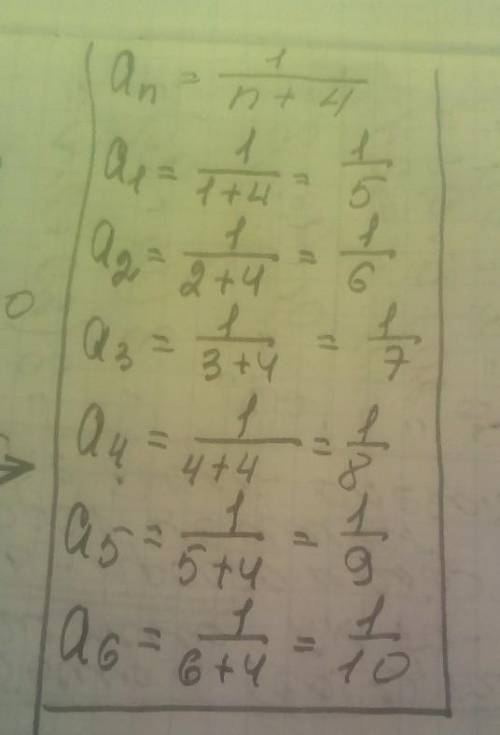 aₙ = 1/(n + 4)
a₁ = 1/(1+4) = 1/5
a₂ = 1/(2+4) = 1/6
a₃ = 1/(3+4) = 1/7
a₄ = 1/(4+4) = 1/8
a₅ = 1/(5+4) = 1/9
a₆ = 1/(6+4) = 1/10